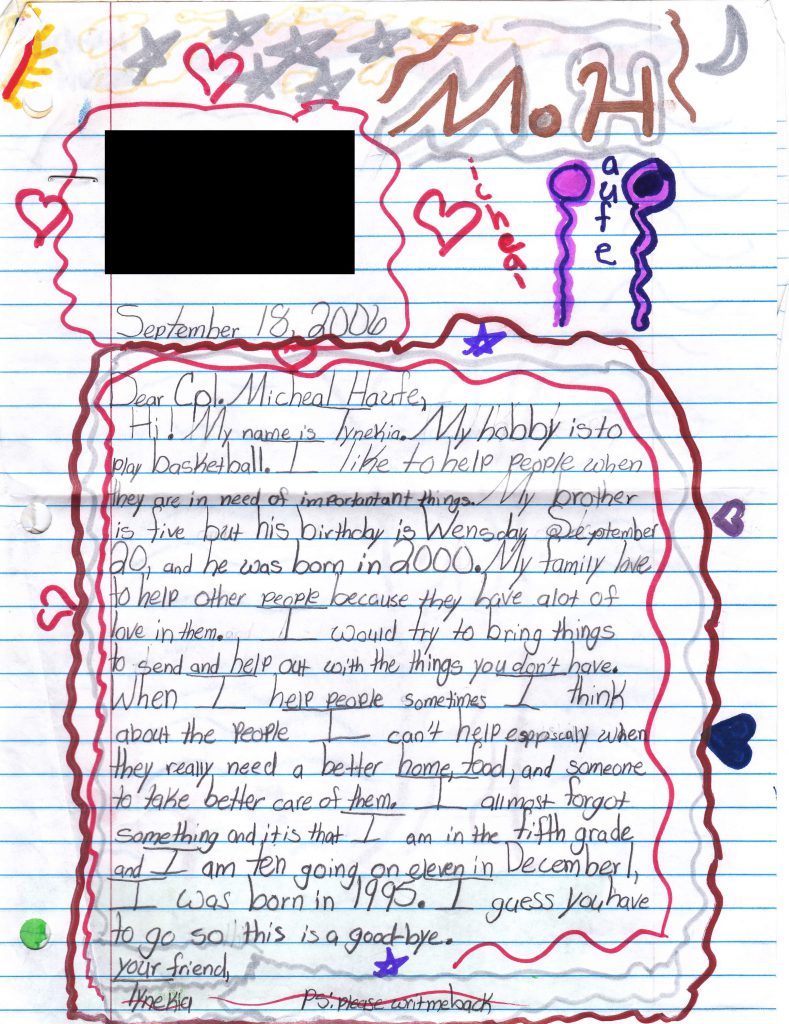 M.H
icheal
aufe
September 18, 2006
Dear Cpl. Micheal Haufe,
Hi! My name is Tynekia. My hobby is to
play basketball. I like to help people when
they are in need of importantant things. My brother
is five but his birthday is Wensday September
20, and he was born in 2000. My family love
to help other people because they have alot of
love in them. I would try to bring things
to send and help out with the things you don't have.
When I help people sometimes I think
about the people I can't help esppscaly when
they really need a better home, food, and someone
to take better care of them. I allmost forgot
something and it is that I am in the fifth grade
and I am ten going on eleven in December 1,
I was born in 1995. I guess you have
to go so this is a good-bye.
your friend,
Tynekia
Ps: please writ me back